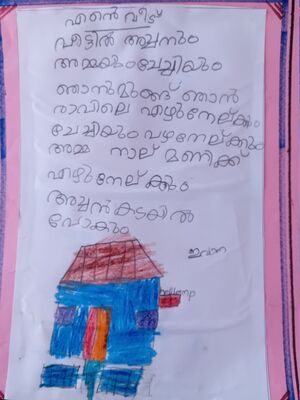 എൻെ വീട്
വീട്ടിൽ അച്ഛനും
അമ്മയും ചേച്ചിയും
ഞാനുമുണ്ട് ഞാൻ
രാവിലെ എഴുനേല്ക്കും
ചേച്ചിയും എഴുനേല്ക്കും
അമ്മ നാല് മണിക്ക്
എഴുനേല്ക്കും
അച്ഛൻ കടയിൽ
പോകും
ഇവാന